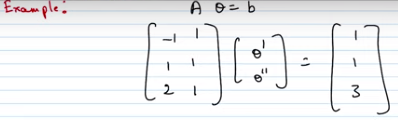 Example: A θ = b
-1 1 1
1 1 θ' = 1
2 1 θ'' 3